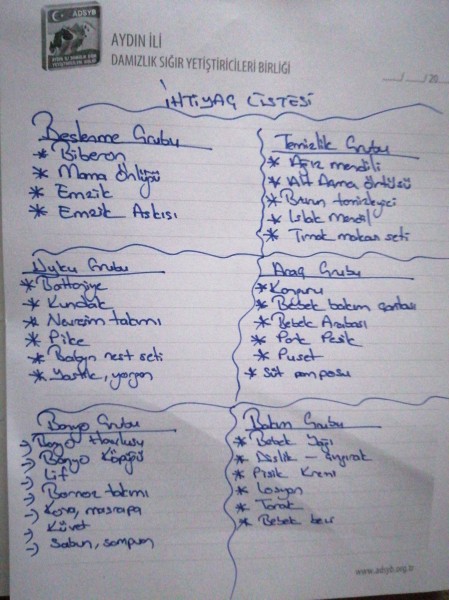 ADSYB
AYDIN İLİ
DAMIZLIK SIĞIR YETİŞTİRİCİLERİ BİRLİĞİ
__/__/20
İHTİYAÇ LİSTESİ
Beslenme Grubu
* Biberon
* Mama Önlüğü
* Emzik
* Emzik Askısı
Temizlik Grubu
* Ağız mendili
* Alt Açma örtüsü
* Burun temizleyici
* Islak Mendil
* Tırnak makası seti
Uyku Grubu
* Battaniye
* Kundak
* Nevresim takımı
* Pike
* Babyn rest seti
* Yastık, yorgan
Araç Grubu
* Kanguru
* Bebek bakım çantası
* Bebek Arabası
* Park
* Puset
* Süt pompası
Banyo Grubu
-) Banyo Havlusu
-) Banyo Köpüğü
-) Lif
-) Bornoz takımı
-) Kova, maşrapa
-) Küvet
-) Sabun, şampuan
Bakım Grubu
* Bebek Yağı
* Dişlik - çıngırak
* Pişik Kremi
* Losyon
* Tarak
* Bebek bezi
www.adsyb.org.tr